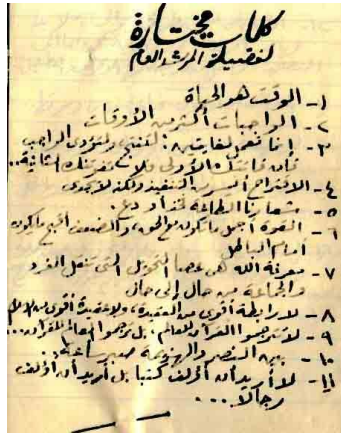 كلمات مختارة
لفضيلة المرشد العام
١- الوقت هو الحياة
٢- الواجبات أكثر من الأوقات
٣- إننا نعمل لغايتين: لننتج ولنؤدي الواجب
فإن فاتتك الأولى فلا تفوتك الثانية..
٤- الاقتراح ميسور التنفيذ ولكنه لا يجدي
٥- شعارنا الطاعة
٦- القوة أجمل ما تكون مع الحق، والضعف أقبح ما يكون
أمام الباطل
٧- معرفة الله هي عصا التحويل التي تنقل الفرد
والجماعة من حال إلى حال
٨- لا رابطة أقوى من العقيدة، ولا عقيدة أقوى من الإسلام
٩- لا تترجموا القرآن للعالم: بل ترجموا العالم للقرآن...
١٠- بين النصر والهزيمة صبر
١١- لا أريد أن أؤلف كتبا بل أريد أن أؤلف
رجالا...